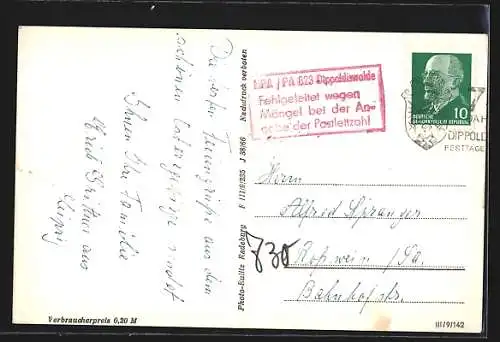 Die besten Feriengrüße aus dem
schönen Osterzgebirge sendet
Ihnen Ihre Familie
aus
Leipzig
Verbraucherpreis 0,20 M
Photo-Brillte Radeburg F III/9/235 J 38/66 Nachdruck verboten
NPA / PA 823 Dippoldiswalde
Fehlgeleitet wegen
Mängel bei der An-
gabe der Postleitzahl
DEUTSCHE
DEMOKRATISCHE REPUBLIK 10
7
DIPPOLD
POSTTAGE
Herrn
Alfred Spranger
730
Roßwein /Sa.
Bahnhofstr.
III/9/142